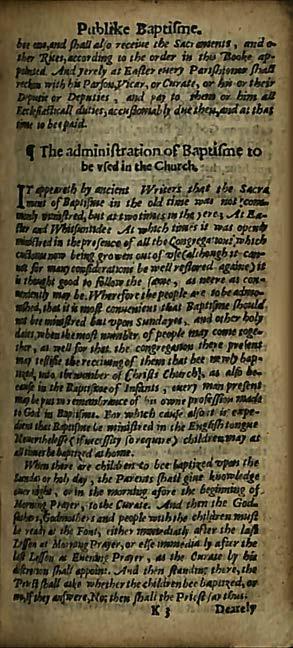 Publike Baptisme.
bee one, and shall also receiue the Sacraments, and o-
ther Rites, according to the order in this Booke ap-
pointed. And yerely at Easter euery Parishioner shall
recken with his Parson, Vicar, or Curate, or his or their
Deputie or Deputies, and pay to them or him all
Ecclesiasticall duties, accustomably due then, and at that
time to bee paid.
¶ The administration of Baptisme to
be vsed in the Church.
IT appeareth by ancient Writers that the Sacra
ment of Baptisme in the old time was not com-
monly ministred, but at two times in the yere; At Ea-
ster and Whitsontide At which times it was openly
ministred in the presence of all the Congregation: which
custome now being growen out of vse (although it can-
not for many considerations be well restored againe) it
is thought good to follow the same, as neere as con-
ueniently may be. Wherefore the people are to be admo-
nished, that it is most conuenient that Baptisme should
not bee ministred but vpon Sundayes, and other holy
daies, when the most number of people may come toge-
ther, as well for that the congregation there present
may testifie the receiuing of them that bee newly bap-
tized, into the number of Christs Church, as also be-
cause in the Baptisme of Infants, euery man present
may be put in remembrance of his owne profession made
to God in Baptisme. For which cause also it is expe-
dient that Baptisme be ministred in the English tongue
Neuerthelesse (if necessity so require) children may at
all times be baptized at home.
When there are children to bee baptized vpon the
Sunday or holy day, the Parents shall giue knowledge
ouer night, or in the morning afore the beginning of
Morning Prayer, to the Curate. And then the God-
fathers, Godmothers and people with the children must
be ready at the Font, either immediatly after the last
Lesson at Morning Prayer, or else immediatly after the
last Lesson at Euening Prayer, as the Curate by his
discretion shall appoint. And then standing there, the
Priest shall aske whether the children bee baptized, or
no, if they answere, No: then shall the Priest say thus.
K 3 Dearely